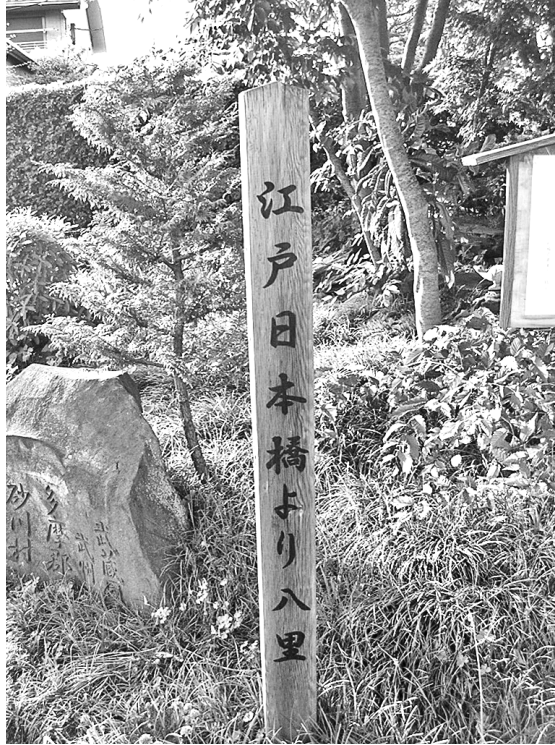 江戸日本橋より八里
武蔵国
武州
多摩郡
砂川村